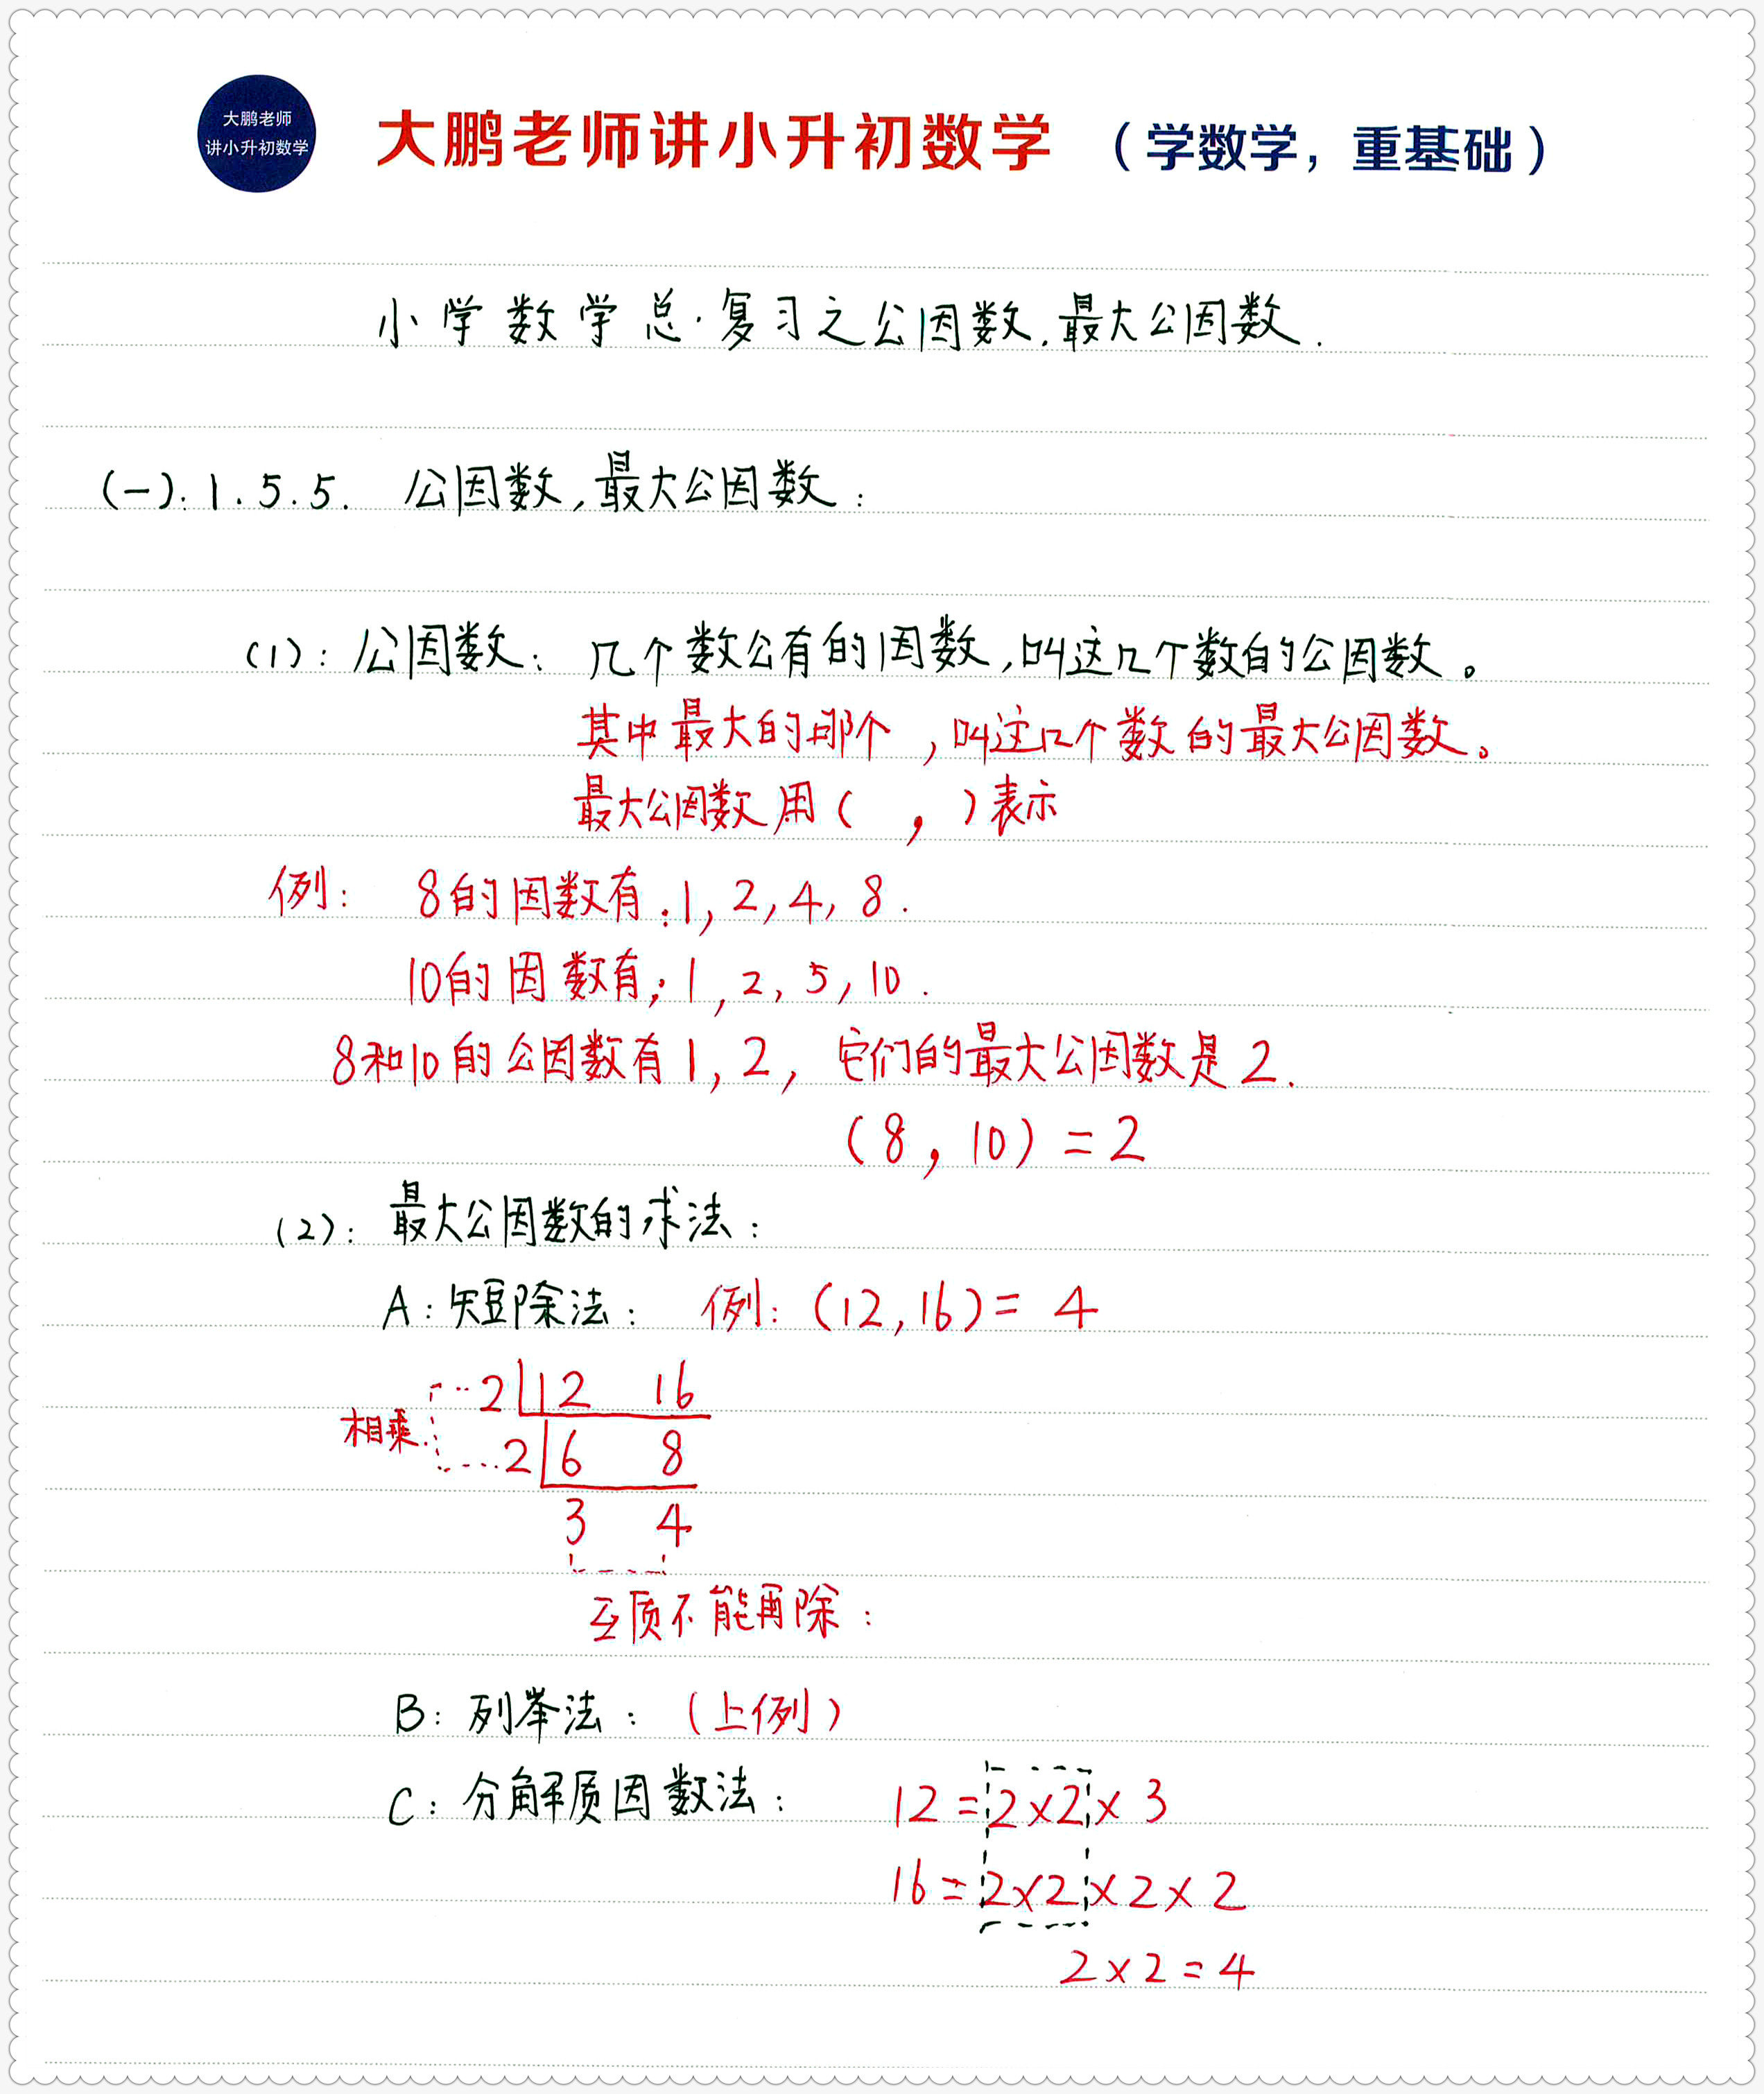 大鹏老师
讲小升初数学
大鹏老师讲小升初数学 （学数学，重基础）
小学数学总复习之公因数,最大公因数.
(一):1.5.5. 公因数,最大公因数:
(1): 公因数: 几个数公有的因数,叫这几个数的公因数。
其中最大的那个,叫这几个数的最大公因数。
最大公因数用( , )表示
例: 8的因数有:1,2,4,8.
10的因数有:1,2,5,10.
8和10的公因数有1,2, 它们的最大公因数是2.
(8,10)=2
(2): 最大公因数的求法:
A:短除法: 例:(12,16)=4
2 12 16
相乘
2 6 8
3 4
互质不能再除:
B: 列举法: (上例)
C: 分解质因数法: 12=2×2×3
16=2×2×2×2
2×2=4